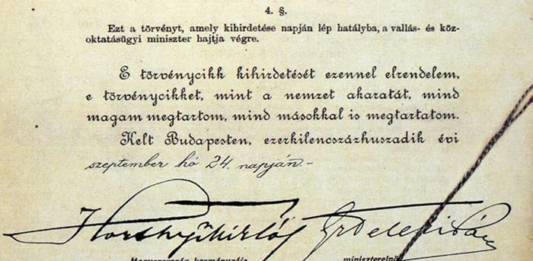 4. §.
Ezt a törvényt, amely kihirdetése napján lép hatályba, a vallás- és köz-
oktatásügyi miniszter hajtja végre.
E törvénycikk kihirdetését ezennel elrendelem,
e törvénycikket, mint a nemzet akaratát, mind
magam megtartom, mind másokkal is megtartatom.
Kelt Budapesten, ezerkilencszázhuszadik évi
szeptember hó 24. napján.-
Horthy Miklós